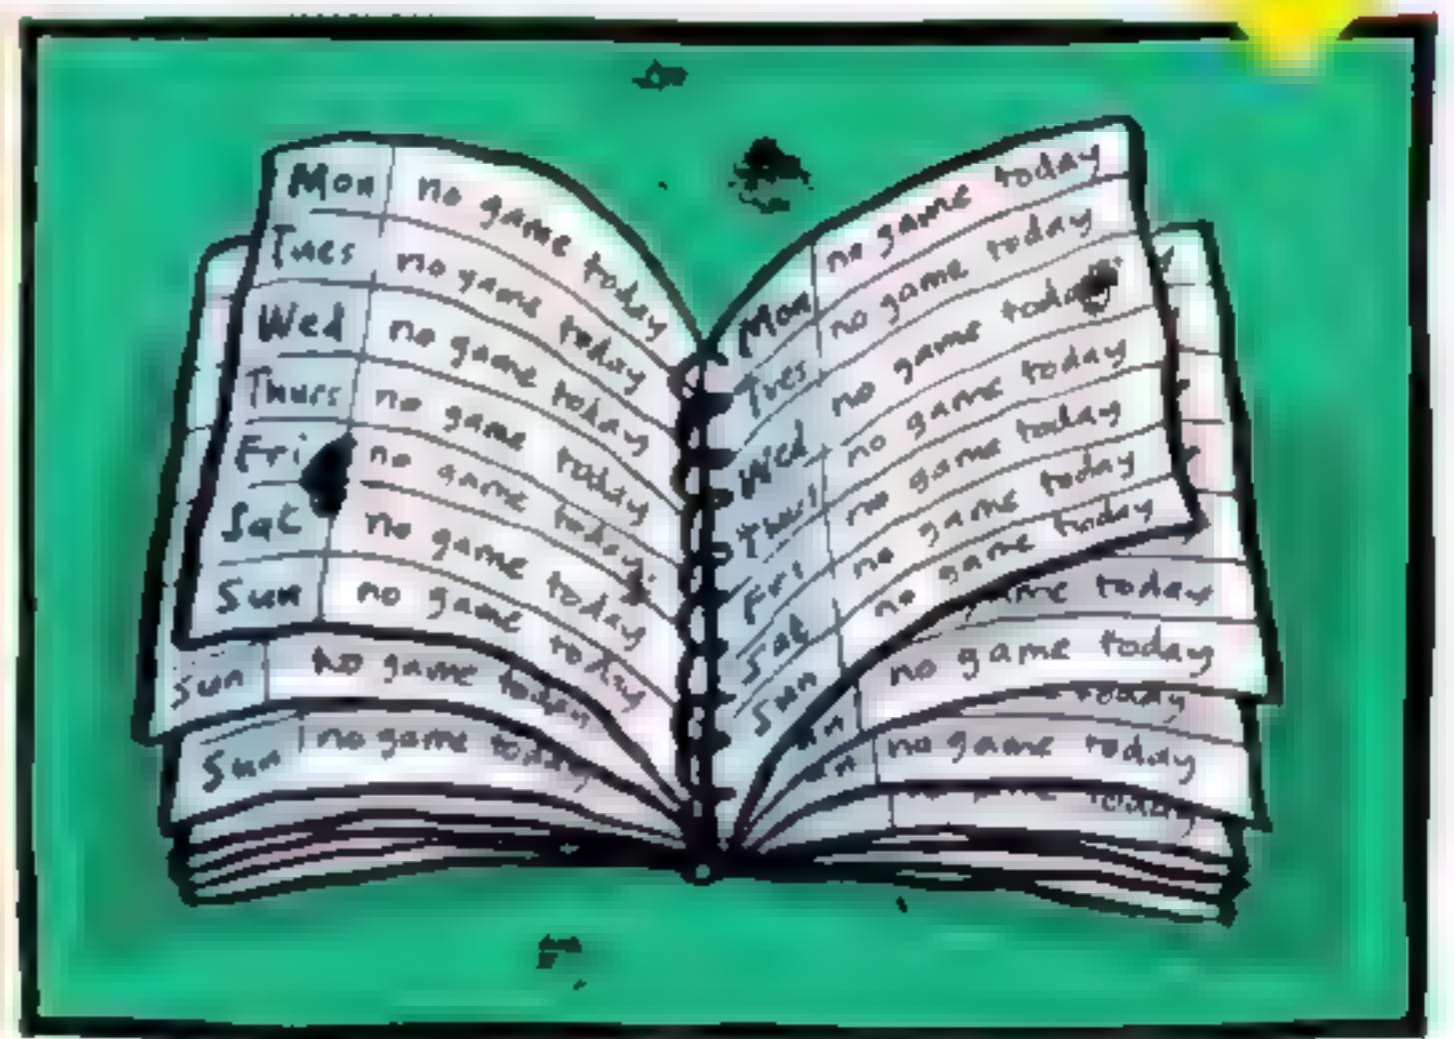 Mon no game today
Tues no game today
Wed no game today
Thurs no game today
Fri no game today.
Sat no game today
Sun no game today
Sun no game today
Sun no game today
Mon no game today
Tues no game today
Wed no game today
Thurs no game today
Fri no game today
Sat no game today
Sun no game today
today
no game today
today
no game today
today